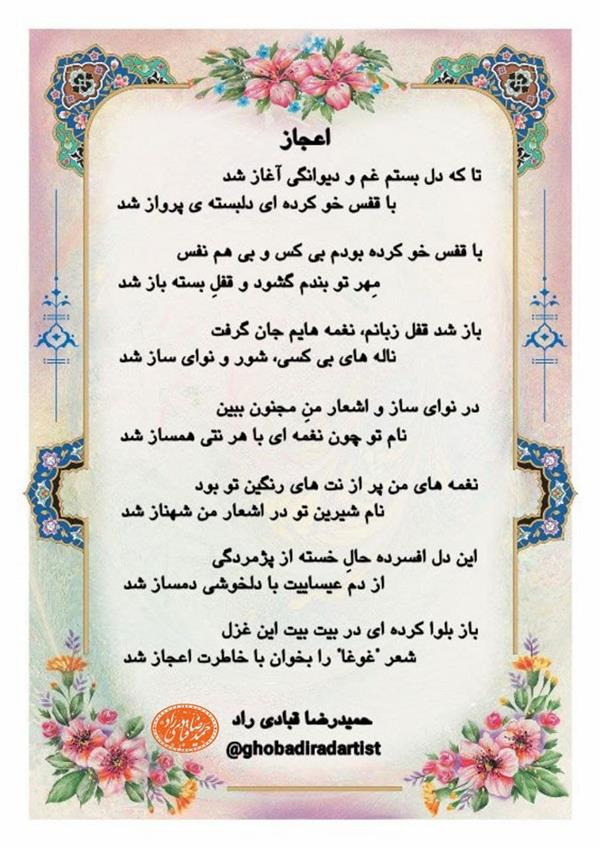 اعجاز
تا که دل بستم غم و دیوانگی آغاز شد
با قفس خو کرده ای دلبسته ی پرواز شد
با قفس خو کرده بودم بی کس و بی هم نفس
مِهر تو بندم گشود و قفلِ بسته باز شد
باز شد قفل زبانم، نغمه هایم جان گرفت
ناله های بی کسی، شور و نوای ساز شد
در نوای ساز و اشعار منِ مجنون ببین
نام تو چون نغمه ای با هر نتی همساز شد
نغمه های من پر از نت های رنگین تو بود
نام شیرین تو در اشعار من شهناز شد
این دل افسرده حالِ خسته از پژمردگی
از دم عیساییت با دلخوشی دمساز شد
باز بلوا کرده ای در بیت بیت این غزل
شعر "غوغا" را بخوان با خاطرت اعجاز شد
حمیدرضا قبادی راد
@ghobadiradartist